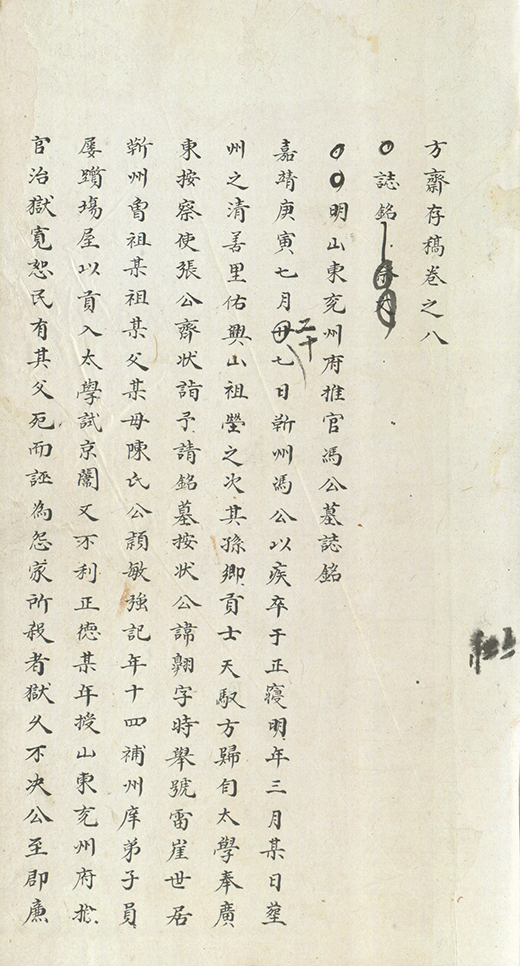 方齋存稿卷之八
誌銘
明山東兗州府推官馮公墓誌銘
嘉靖庚寅七月二十七日蘄州馮公以疾卒于正寢明年三月某日塟
州之清善里佑興山祖塋之次其孫鄉貢士天馭方歸自太學奉廣
東按察使張公齊状詣予請銘墓按状公諱翺字時舉號雷崖世居
蘄州曾祖某祖某父某母陳氏公頴敏強記年十四補州庠弟子員
屡躓塲屋以貢入太學試京闈又不利正德某年授山東兗州府推
官治獄寛恕民有其父死而誣為怨家所殺者獄久不决公至即廉